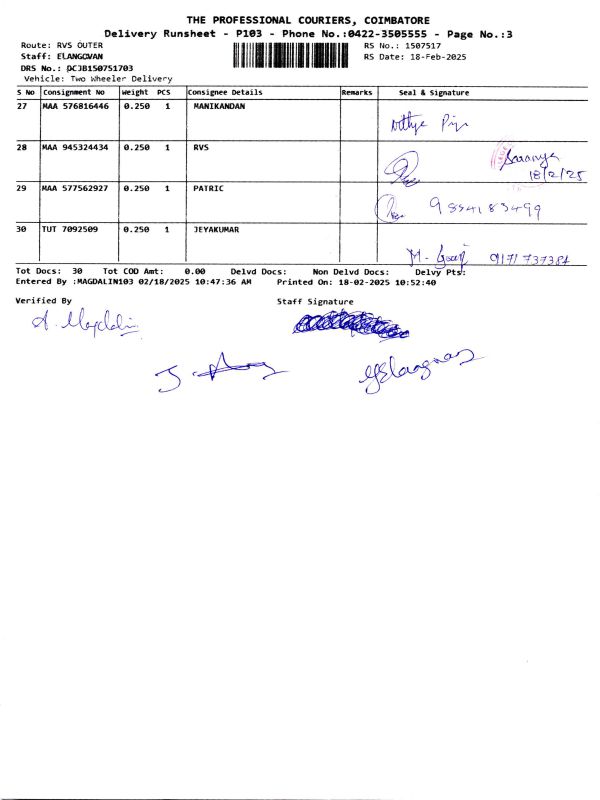 THE PROFESSIONAL COURIERS, COIMBATORE
Delivery Runsheet - P103 - Phone No.:0422-3505555 - Page No.:3
Route: RVS OUTER RS No.: 1507517
Staff: ELANGOVAN RS Date: 18-Feb-2025
DRS No.: DCJB150751703
Vehicle: Two Wheeler Delivery
S No Consignment No Weight PCS Consignee Details Remarks Seal & Signature
27 MAA 576816446 0.250 1 MANIKANDAN
28 MAA 945324434 0.250 1 RVS Saranya
18/2/25
29 MAA 577562927 0.250 1 PATRIC
30 TUT 7092509 0.250 1 JEYAKUMAR 9171737384
Tot Docs: 30 Tot COD Amt: 0.00 Delvd Docs: Non Delvd Docs: Delvy Pts:
Entered By :MAGDALIN103 02/18/2025 10:47:36 AM Printed On: 18-02-2025 10:52:40
Verified By Staff Signature
A. Magdalin